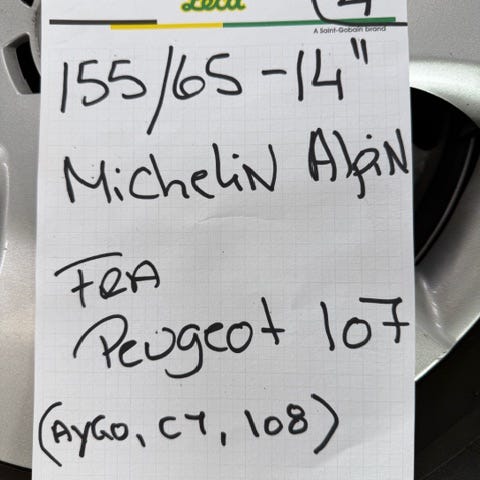 Leca
4
A Saint-Gobain brand
155/65-14"
Michelin Alpin
FRA
Peugeot 107
(AYGO, C1, 108)